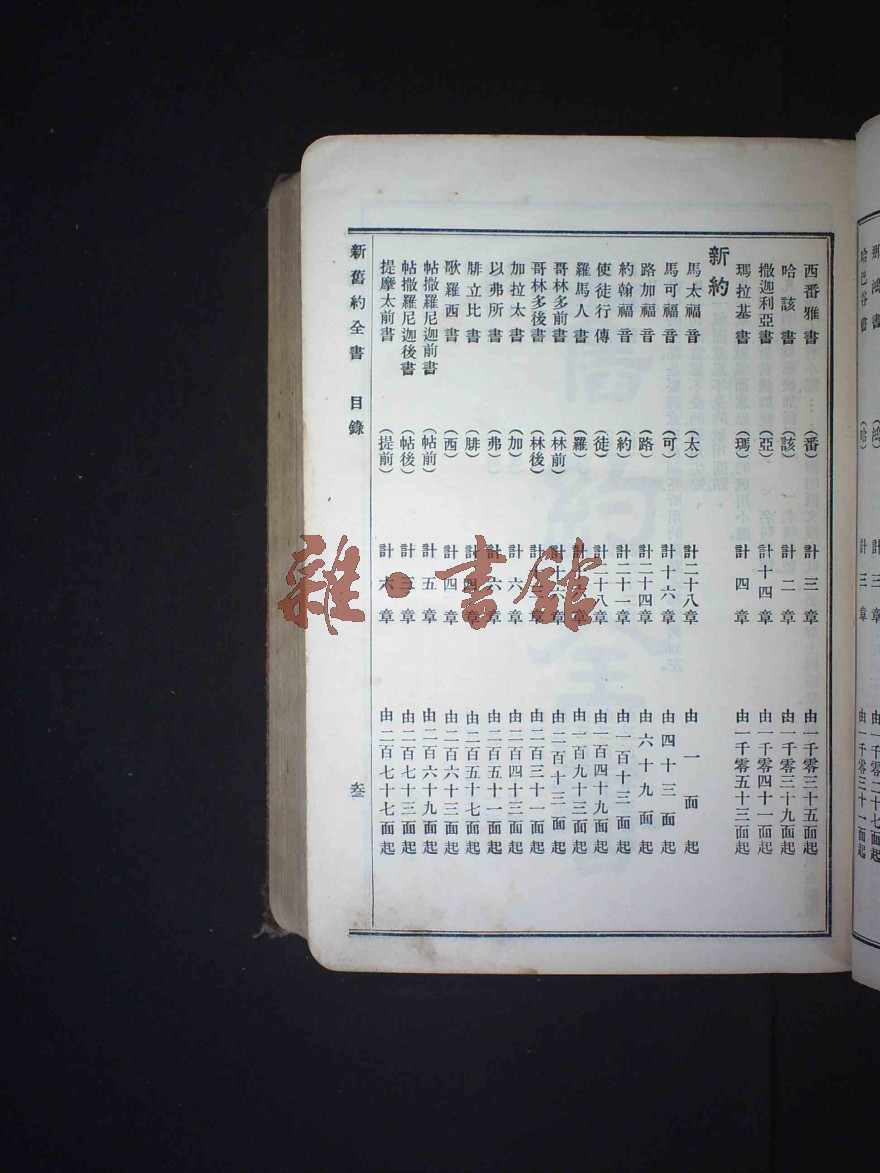 鴻書 (鴻) 計三章 由一千零二十七面起
哈巴谷書 (哈) 計三章 由一千零三十一面起
西番雅書 (番) 計三章 由一千零三十五面起
哈該書 (該) 計二章 由一千零三十九面起
撒迦利亞書 (亞) 計十四章 由一千零四十一面起
瑪拉基書 (瑪) 計四章 由一千零五十三面起
新約
馬太福音 (太) 計二十八章 由一面起
馬可福音 (可) 計十六章 由四十三面起
路加福音 (路) 計二十四章 由六十九面起
約翰福音 (約) 計二十一章 由一百十三面起
使徒行傳 (徒) 計二十八章 由一百四十九面起
羅馬人書 (羅) 計十六章 由一百九十三面起
哥林多前書 (林前) 計十六章 由二百十三面起
哥林多後書 (林後) 計十三章 由二百三十一面起
加拉太書 (加) 計六章 由二百四十三面起
以弗所書 (弗) 計六章 由二百五十一面起
腓立比書 (腓) 計四章 由二百五十七面起
歌羅西書 (西) 計四章 由二百六十三面起
帖撒羅尼迦前書 (帖前) 計五章 由二百六十九面起
帖撒羅尼迦後書 (帖後) 計三章 由二百七十三面起
提摩太前書 (提前) 計六章 由二百七十七面起
新舊約全書 目錄 叁
雜·書館